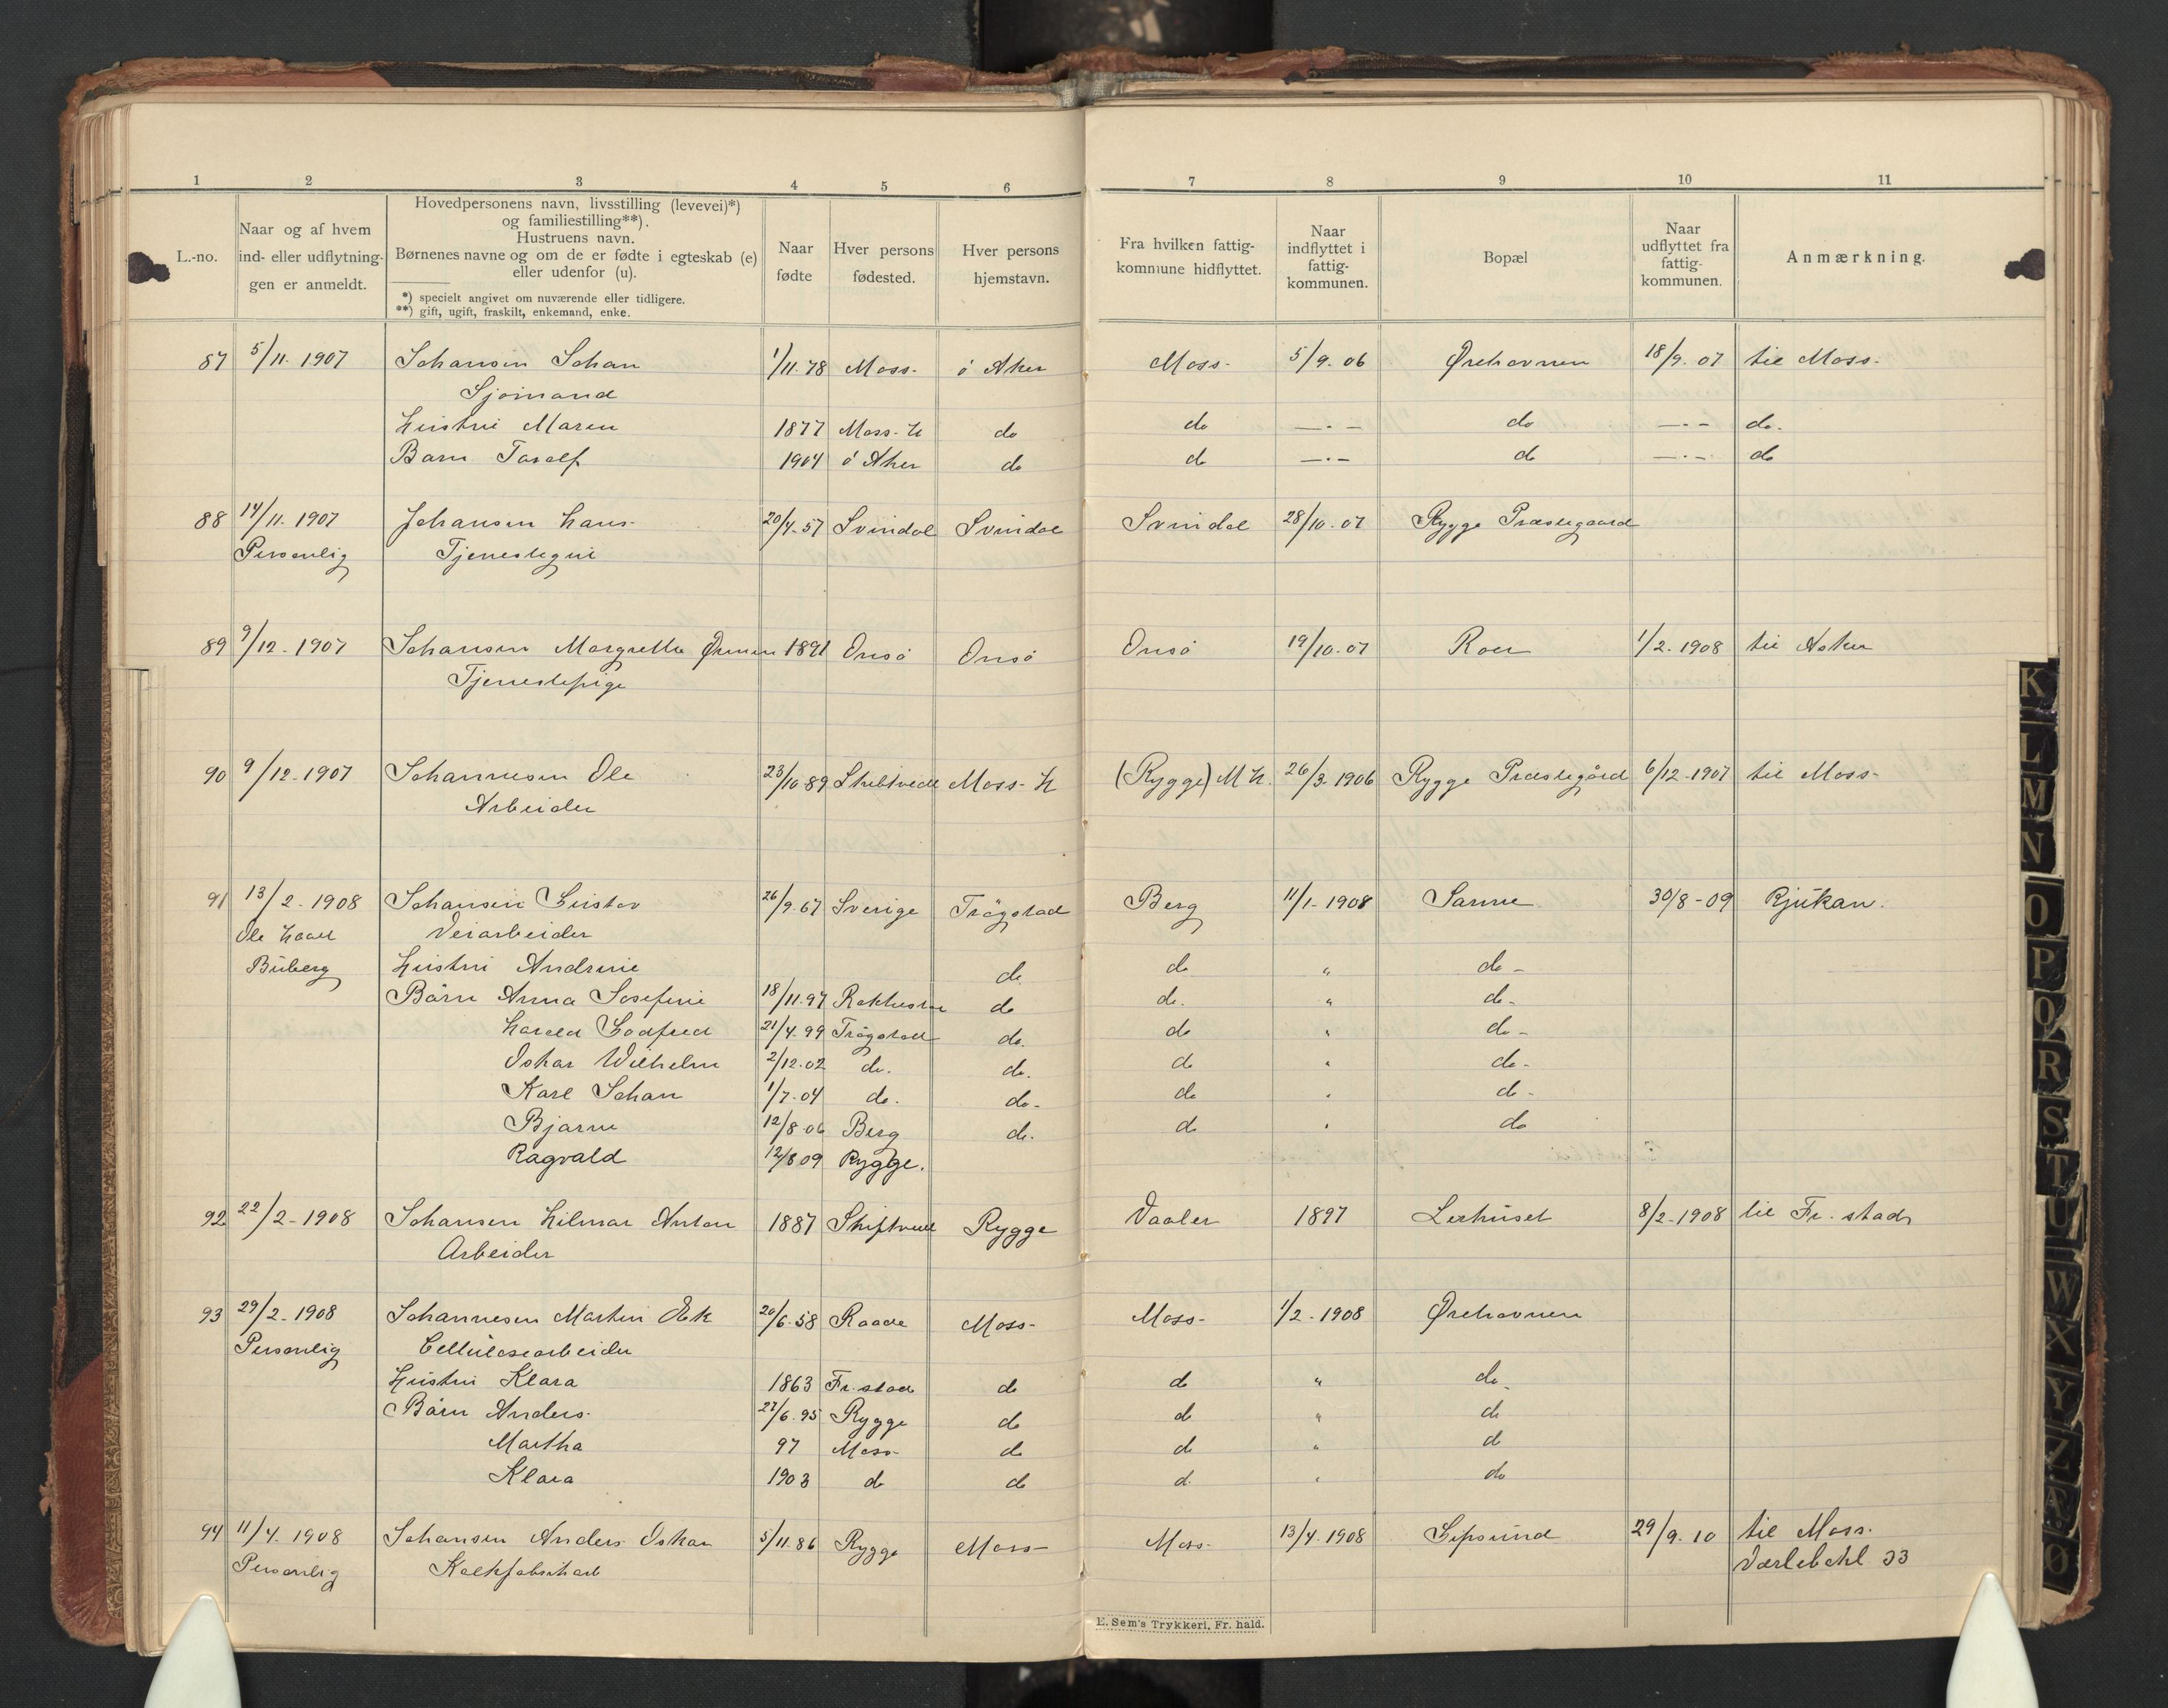 1 2 3 4 5 6 7 8 9 10 11
L.-no.
Naar og af hvem
ind- eller udflytnin-
gen er anmeldt.
Hovedpersonens navn, livsstilling (levevei)*)
og familiestilling**).
Hustruens navn.
Børnenes navne og om de er fødte i egteskab (e)
eller udenfor (u).
*) specielt angivet om nuværende eller tidligere.
**) gift, ugift, fraskilt, enkemand, enke.
Naar
fødte
Hver persons
fødested.
Hver persons
hjemstavn.
Fra hvilken fattig-
kommune hidflyttet.
Naar
indflyttet i
fattig-
kommunen.
Bopæl
Naar
udflyttet fra
fattig-
kommunen.
Anmærkning.
87 5/11. 1907 Johansen Johan 1/11.78 Moss. ö Aker Moss. 5/9. 06 Ørehavnen 18/9. 07 til Moss.
Sjömand
Hustru Maren 1877 Moss. L do do —·— do —·— do.
Barn Toralf 1904 ö Aker do do —·— do —·— do
88 14/11. 1907 Johansen Hans. 20/4-57 Svindal Svindal Svindal 28/10-07 Rygge Præstegaard
Personlig Tjenestegut
89 9/12-1907 Johansen Margrethe 1891 Onsö Onsö Onsö 19/10-07 Roer 1/2.1908 til Asker
Tjenestepige
90 9/12-1907 Johannesen Ole 23/10 89 Skibtvedt Moss. L (Rygge) M L. 26/3.1906 Rygge Præstegård 6/12-1907 til Moss-
Arbeider
91 13/2-1908 Johansen Gustav 26/9.67 Sverige Trögstad Berg 11/1-1908 Sarne 30/8-09 Rjukan.
Ole Veiarbeider
Buberg Hustru Andrine do do " do-
Börn Anna Josefine 18/11.97 Rakkestad do do. " do-
Harald Godfred 21/4.99 Trögstad do. do " do-
Oskar Wilhelm 2/12.02 do. do. do " do-
Karl Johan 1/7-04 do. do- do " do-
Bjarne 12/8 06 Berg do. do " do
Ragvald 12/8 09 Rygge.
92 22/2-1908 Johansen Hilmar Anton 1887 Skiptvedt Rygge Vaaler 1897 Lerhuset 8/2-1908 til Fr. stad
Arbeider
93 29/2-1908 Johannesen Martin Ek 20/6-58 Raade Moss- Moss- 1/2-1908 Ørehavnen
Personlig Cellulosearbeider
Hustru Klara 1863 Fr. stad do do " do
Börn Anders. 27/6.95 Rygge do do " do
Martha 97 Moss- do do " do
Klara 1903 do do do " do
94 11/4.1908 Johansen Anders Oskar 5/11.86 Rygge Moss- Moss- 13/4.1908 Gipsund 29/9.10 til Moss.
Personlig Kalkfabrikarb Værlebakl 33
E. Sem's Trykkeri, Fr. hald.
K
L
M
N
O
P
Q
R
S
T
U
W
X
Y
Z
Æ
Ø